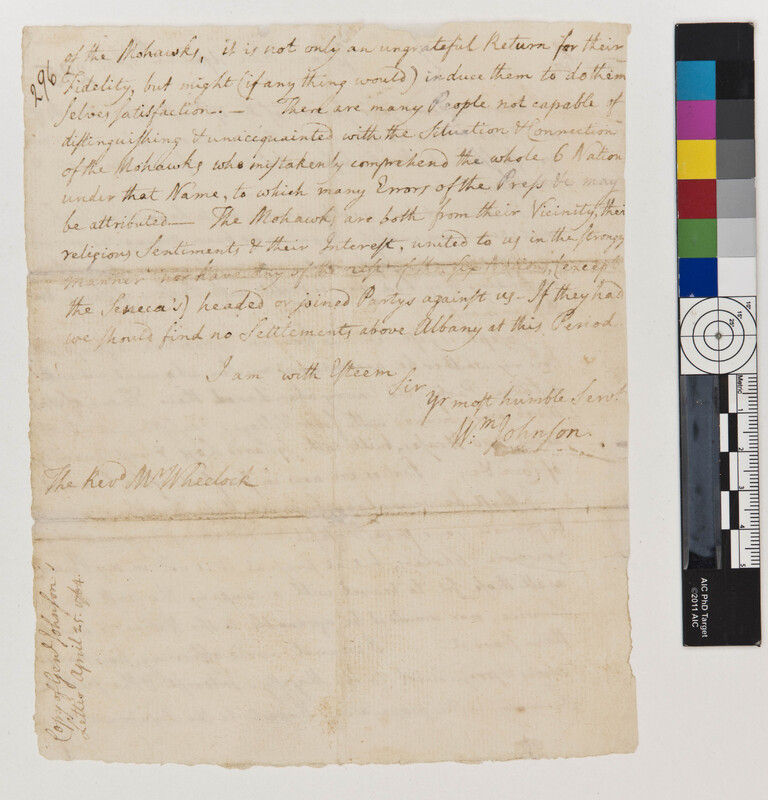 of the Mohawks, it is not only an ungrateful Return for their
Fidelity, but might (if any thing would) induce them to do them
selves satisfaction. — There are many People not capable of
distinguishing & unacequainted with the Situation & Connection
of the Mohawks who mistakenly comprehend the whole 6 Nation
under that Name, to which many Errors of the Press &c may
be attributed — The Mohawks are both from their Vicinity, their
religious Sentiments & their Interest, united to us in the strong
manner nor have any of the rest of the six Nations, (except
the Seneca's) headed or joined Partys against us. If they had
we should find no Settlements above Albany at this Period
I am with Esteem
Sir
Yr most humble Servt
Wm Johnson.
The Revd Mr Wheelock
296
Copy of Genl Johnson's
Letter April 25. 1764
Metric
1
2
3
4
5
10°
15°
25°
AIC PhD Target
©2011 AIC